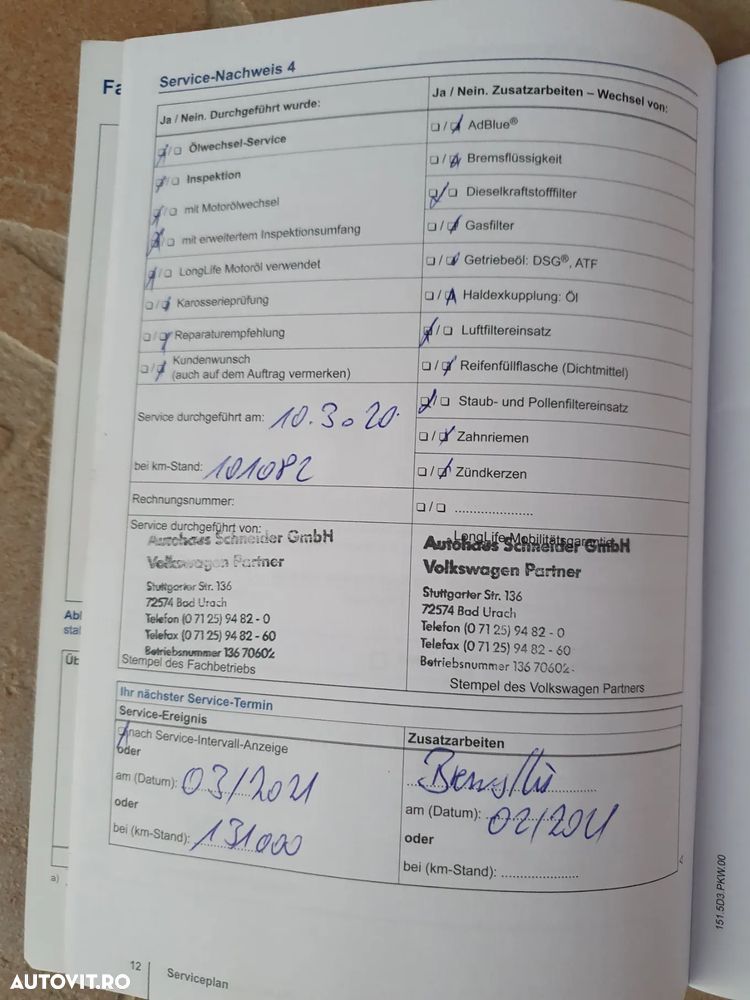 Fa
Service-Nachweis 4
Ja / Nein. Durchgeführt wurde:
Ölwechsel-Service
Inspektion
mit Motorölwechsel
mit erweitertem Inspektionsumfang
LongLife Motoröl verwendet
Karosserieprüfung
Reparaturempfehlung
Kundenwunsch
(auch auf dem Auftrag vermerken)
Service durchgeführt am: 10.3.20.
bei km-Stand: 101082
Rechnungsnummer:
Service durchgeführt von:
Autohaus Schneider GmbH
Volkswagen Partner
Stuttgarter Str. 136
72574 Bad Urach
Telefon (0 71 25) 94 82 - 0
Telefax (0 71 25) 94 82 - 60
Betriebsnummer 136 70602
Stempel des Fachbetriebs
Ja / Nein. Zusatzarbeiten – Wechsel von:
AdBlue®
Bremsflüssigkeit
Dieselkraftstofffilter
Gasfilter
Getriebeöl: DSG®, ATF
Haldexkupplung: Öl
Luftfiltereinsatz
Reifenfüllflasche (Dichtmittel)
Staub- und Pollenfiltereinsatz
Zahnriemen
Zündkerzen
LongLife Mobilitätsgarantie
Autohaus Schneider GmbH
Volkswagen Partner
Stuttgarter Str. 136
72574 Bad Urach
Telefon (0 71 25) 94 82 - 0
Telefax (0 71 25) 94 82 - 60
Betriebsnummer 136 70602
Stempel des Volkswagen Partners
Abl
stal
Üb
a)
Ihr nächster Service-Termin
Service-Ereignis
nach Service-Intervall-Anzeige
oder
am (Datum): 03/2021
oder
bei (km-Stand): 131000
Zusatzarbeiten
am (Datum): 02/2021
oder
bei (km-Stand):
151.5D3.PKW.00
12
Serviceplan
AUTOVIT.RO